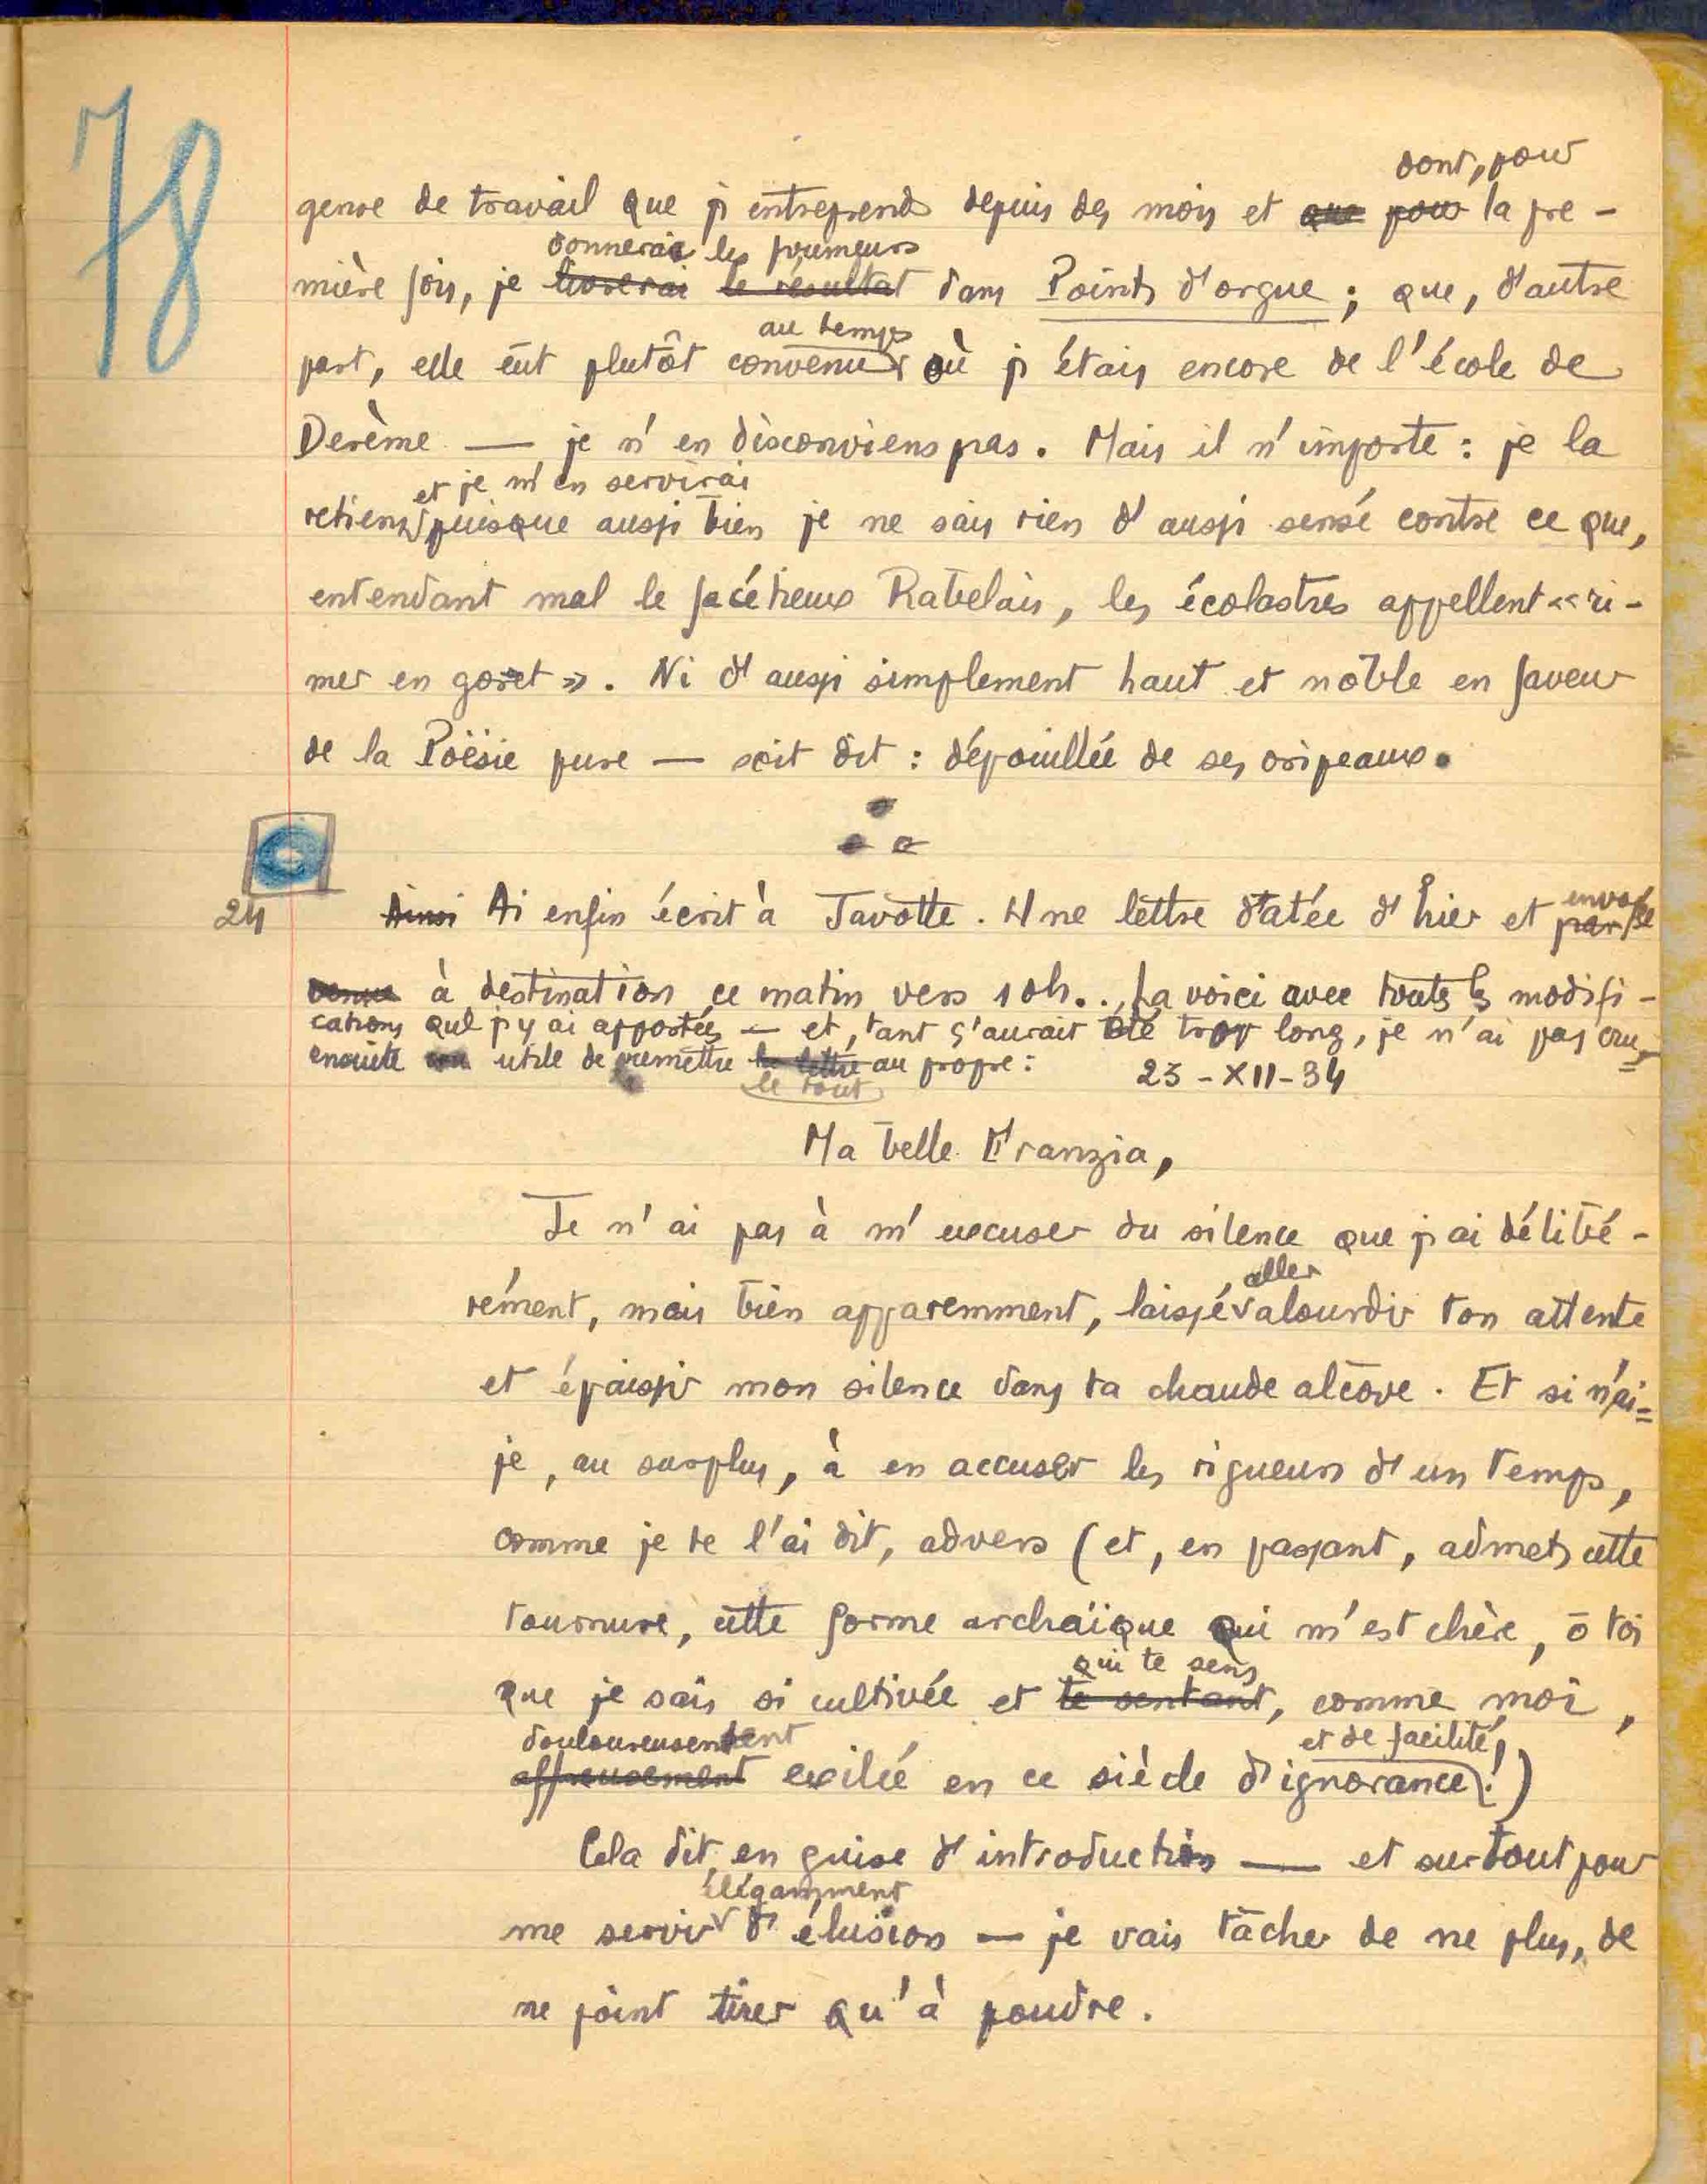 78
dont, pour
genre de travail que j'entreprends depuis des mois et que pour la pre-
donnerai les primeurs
mière fois, je livrerai le résultat dans Points d'orgue ; que, d'autre
au temps
part, elle eût plutôt convenu où j'étais encore de l'école de
Derème — je n'en disconviens pas. Mais il n'importe : je la
et je m'en servirai
retiens puisque aussi bien je ne sais rien d'aussi sensé contre ce que,
entendant mal le facétieux Rabelais, les écolastres appellent « ri-
mer en goret ». Ni d'aussi simplement haut et noble en faveur
de la Poësie pure — soit dit : dépouillée de ses oripeaux.
24
envoyée
Ainsi Ai enfin écrit à Javotte. Une lettre datée d'hier et par
venue à destination ce matin vers 10h.. La voici avec toutes les modifi-
cations que j'y ai apportées — et, tant ç'aurait été trop long, je n'ai pas cru
ensuite utile de remettre la lettre au propre :
le tout
23-XII-34
Ma belle Franzia,
Je n'ai pas à m'excuser du silence que j'ai délibé-
aller
rément, mais bien apparemment, laissé alourdir ton attente
et épaissir mon silence dans ta chaude alcôve. Et si n'ai-
je, au surplus, à en accuser les rigueurs d'un temps,
comme je te l'ai dit, advers (et, en passant, admets cette
tournure, cette forme archaïque qui m'est chère, ô toi
qui te sens
que je sais si cultivée et te sentant, comme moi,
douloureusement
et de facilité !
affreusement exilée en ce siècle d'ignorance !)
Cela dit, en guise d'introduction — et surtout pour
élégamment
me servir d'élusion — je vais tâcher de ne plus, de
ne point tirer qu'à poudre.